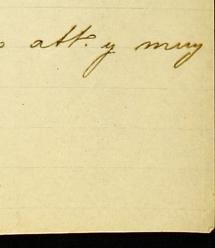 att. y muy